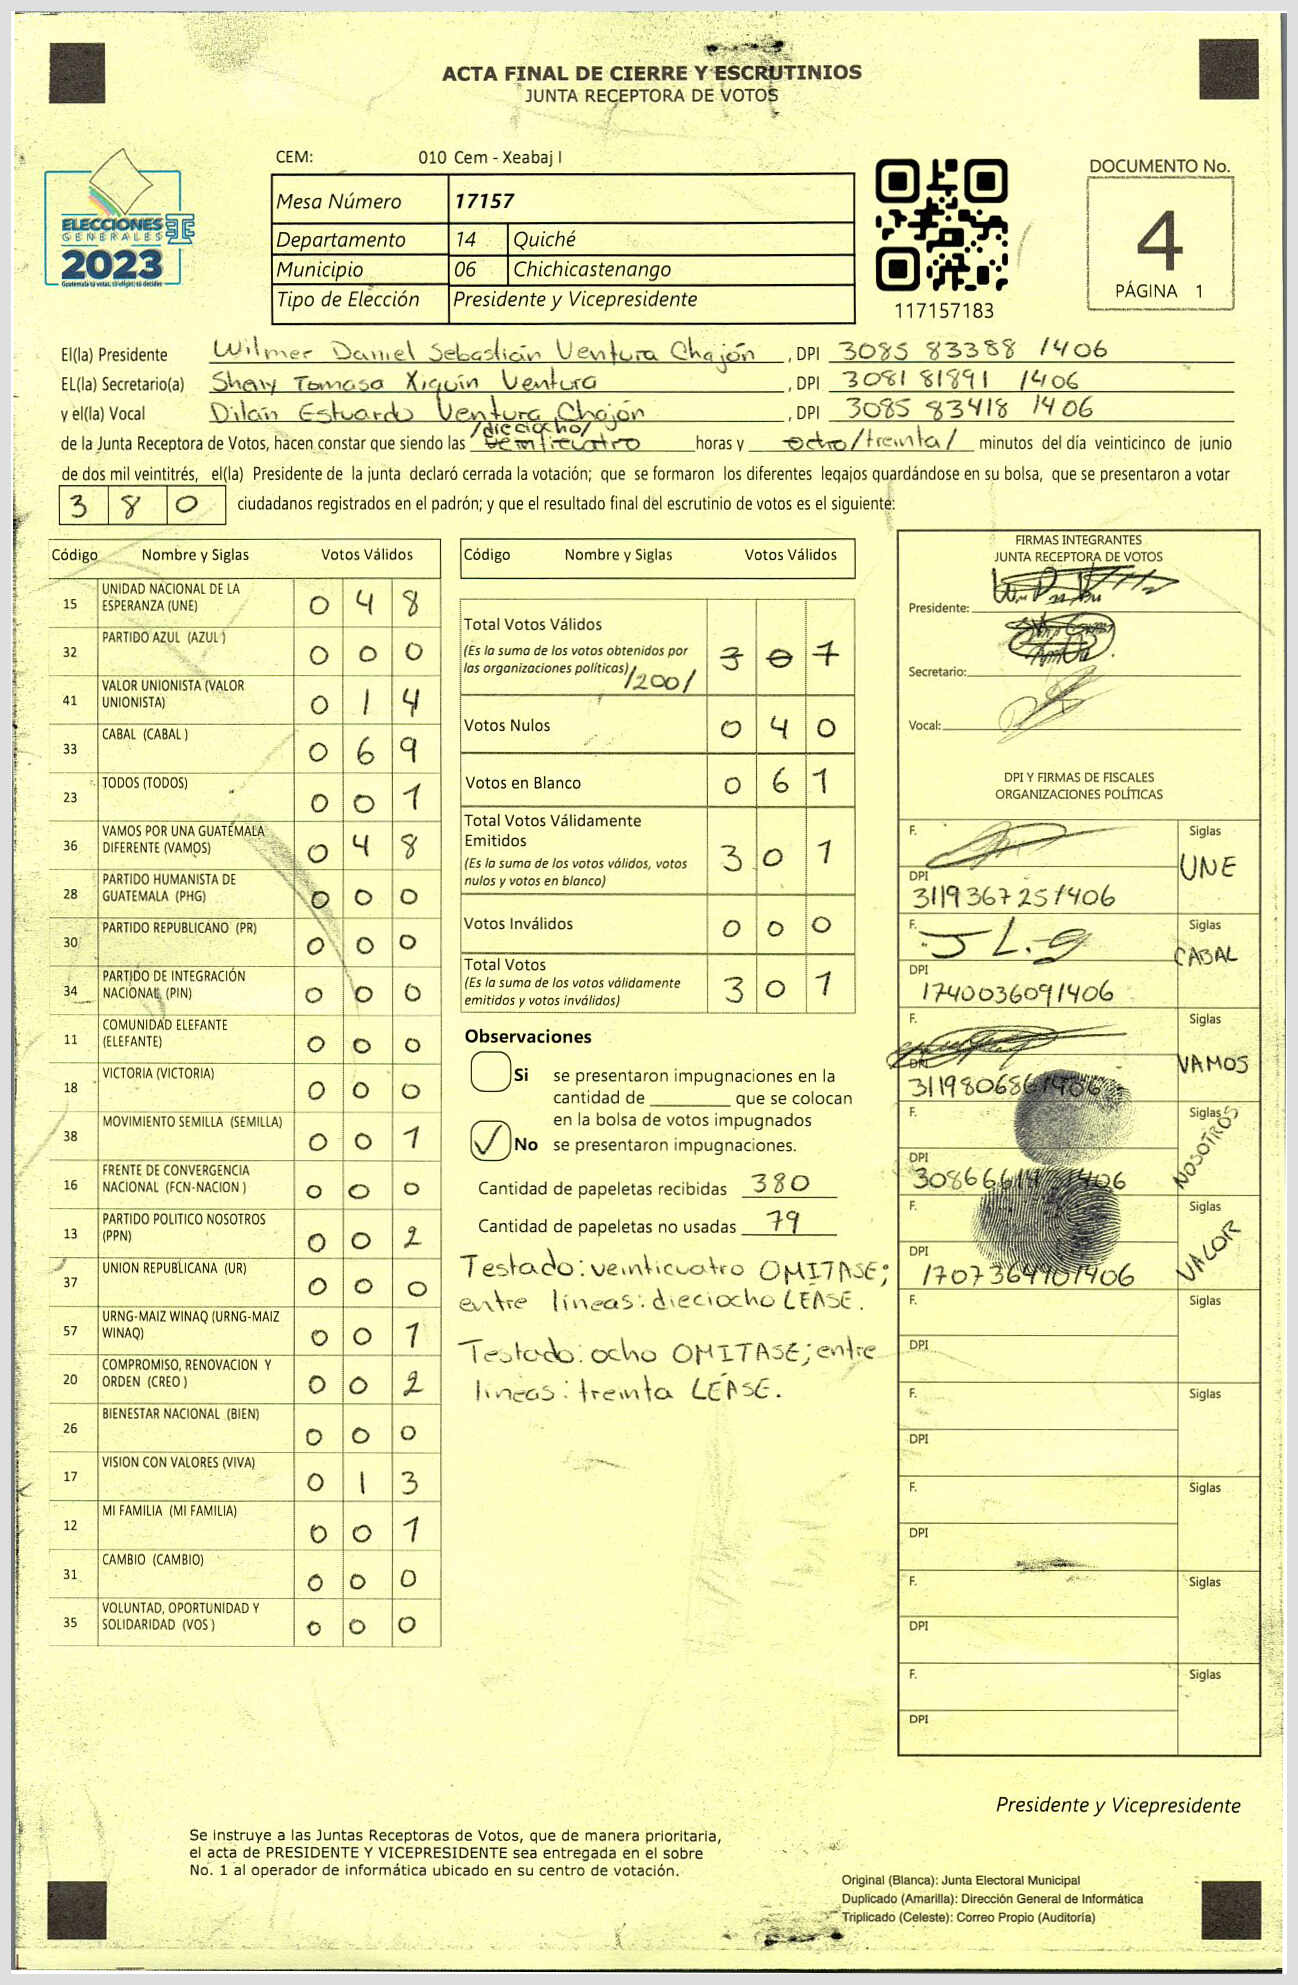 ACTA FINAL DE CIERRE Y ESCRUTINIOS
JUNTA RECEPTORA DE VOTOS
ELECCIONES
GENERALES
2023
CEM: 010 Cem - Xeabaj I
Mesa Número 17157
Departamento 14 Quiché
Municipio 06 Chichicastenango
Tipo de Elección Presidente y Vicepresidente
117157183
DOCUMENTO No.
4
PÁGINA 1
El(la) Presidente Wilmer Daniel Sebastián Ventura Chajón, DPI 3085 83388 1406
EL(la) Secretario(a) Shery Tomasa Xiquín Ventura, DPI 3081 81891 1406
y el(la) Vocal Dilan Estuardo Ventura Chajón, DPI 3085 83418 1406
/dieciocho/
de la Junta Receptora de Votos, hacen constar que siendo las veinticuatro horas y ocho/treinta/ minutos del día veinticinco de junio
de dos mil veintitrés, el(la) Presidente de la junta declaró cerrada la votación; que se formaron los diferentes legajos guardándose en su bolsa, que se presentaron a votar
380 ciudadanos registrados en el padrón; y que el resultado final del escrutinio de votos es el siguiente:
Código Nombre y Siglas Votos Válidos
15 UNIDAD NACIONAL DE LA ESPERANZA (UNE) 0 4 8
32 PARTIDO AZUL (AZUL ) 0 0 0
41 VALOR UNIONISTA (VALOR UNIONISTA) 0 1 4
33 CABAL (CABAL ) 0 6 9
23 TODOS (TODOS) 0 0 1
36 VAMOS POR UNA GUATEMALA DIFERENTE (VAMOS) 0 4 8
28 PARTIDO HUMANISTA DE GUATEMALA (PHG) 0 0 0
30 PARTIDO REPUBLICANO (PR) 0 0 0
34 PARTIDO DE INTEGRACIÓN NACIONAL (PIN) 0 0 0
11 COMUNIDAD ELEFANTE (ELEFANTE) 0 0 0
18 VICTORIA (VICTORIA) 0 0 0
38 MOVIMIENTO SEMILLA (SEMILLA) 0 0 1
16 FRENTE DE CONVERGENCIA NACIONAL (FCN-NACION ) 0 0 0
13 PARTIDO POLITICO NOSOTROS (PPN) 0 0 2
37 UNION REPUBLICANA (UR) 0 0 0
57 URNG-MAIZ WINAQ (URNG-MAIZ WINAQ) 0 0 1
20 COMPROMISO, RENOVACION Y ORDEN (CREO ) 0 0 2
26 BIENESTAR NACIONAL (BIEN) 0 0 0
17 VISION CON VALORES (VIVA) 0 1 3
12 MI FAMILIA (MI FAMILIA) 0 0 1
31 CAMBIO (CAMBIO) 0 0 0
35 VOLUNTAD, OPORTUNIDAD Y SOLIDARIDAD (VOS ) 0 0 0
Código Nombre y Siglas Votos Válidos
Total Votos Válidos
(Es la suma de los votos obtenidos por
las organizaciones políticas) /200/ 3 0 1
Votos Nulos 0 4 0
Votos en Blanco 0 6 1
Total Votos Válidamente
Emitidos
(Es la suma de los votos válidos, votos
nulos y votos en blanco) 3 0 1
Votos Inválidos 0 0 0
Total Votos
(Es la suma de los votos válidamente
emitidos y votos inválidos) 3 0 1
Observaciones
Si se presentaron impugnaciones en la
cantidad de ________ que se colocan
en la bolsa de votos impugnados
No se presentaron impugnaciones.
Cantidad de papeletas recibidas 380
Cantidad de papeletas no usadas 79
Testado: veinticuatro OMITASE;
entre líneas: dieciocho LEASE.
Testado: ocho OMITASE; entre
líneas: treinta LEASE.
FIRMAS INTEGRANTES
JUNTA RECEPTORA DE VOTOS
Presidente:
Secretario:
Vocal:
DPI Y FIRMAS DE FISCALES
ORGANIZACIONES POLÍTICAS
F. Siglas UNE
DPI 3119367251406
F. J L. Siglas CABAL
DPI 1740036091406
F. Siglas VAMOS
DPI 3119806861406
F. Siglas NOSOTROS
DPI
F. Siglas VALOR
DPI
F. Siglas
DPI
F. Siglas
DPI
F. Siglas
DPI
F. Siglas
DPI
F. Siglas
DPI
Presidente y Vicepresidente
Se instruye a las Juntas Receptoras de Votos, que de manera prioritaria,
el acta de PRESIDENTE Y VICEPRESIDENTE sea entregada en el sobre
No. 1 al operador de informática ubicado en su centro de votación.
Original (Blanca): Junta Electoral Municipal
Duplicado (Amarilla): Dirección General de Informática
Triplicado (Celeste): Correo Propio (Auditoría)